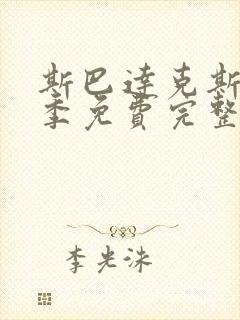 斯巴达克斯
季免费完整
李光洙